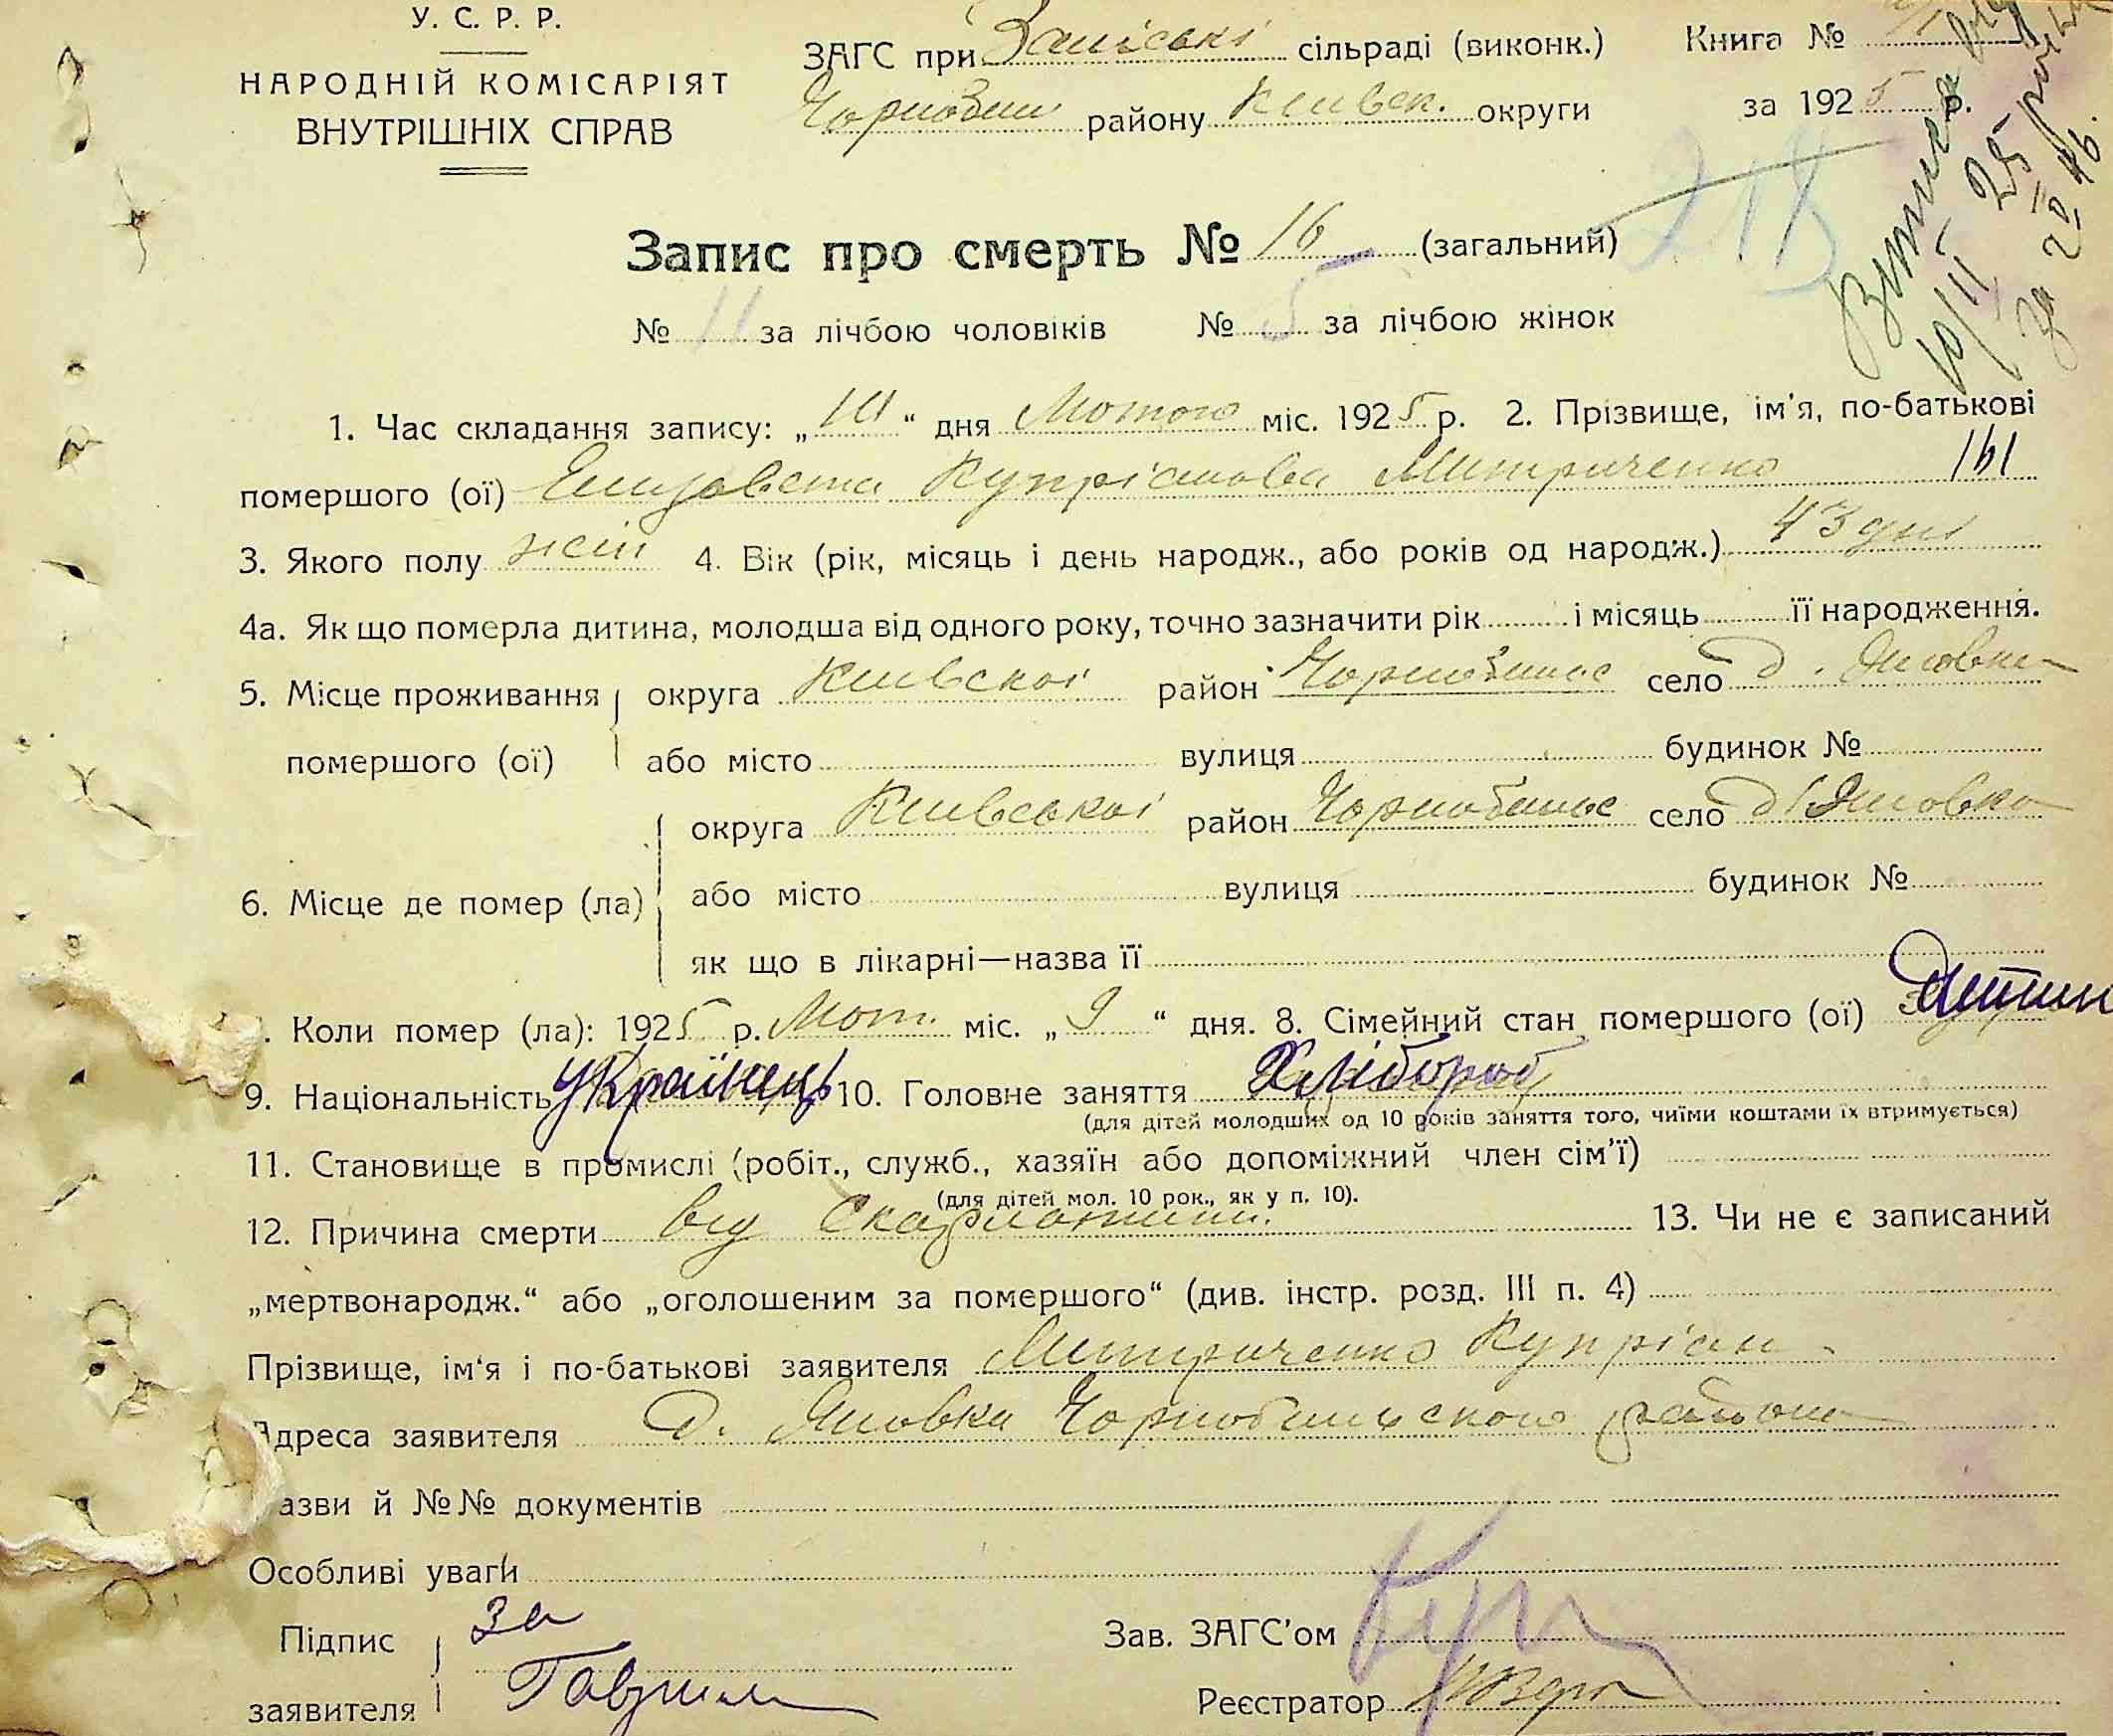 У. С. Р. Р.
НАРОДНІЙ КОМІСАРІЯТ
ВНУТРІШНІХ СПРАВ
ЗАГС при сільраді (виконк.)
району Київск. округи
Книга №
за 1925 р.
218
Запис про смерть № 16 (загальний)
№ 11 за лічбою чоловіків № 5 за лічбою жінок
1. Час складання запису: „ “ дня Лютого міс. 1925 р. 2. Прізвище, ім'я, по-батькові
помершого (ої) Елизавета Купріанова Митриченко 161
3. Якого полу жен 4. Вік (рік, місяць і день народж., або років од народж.) 43 дні
4а. Як що померла дитина, молодша від одного року, точно зазначити рік і місяць її народження.
5. Місце проживання округа Київскоі район село д.
помершого (ої) або місто вулиця будинок №
округа Київськоі район село д.
6. Місце де помер (ла) або місто вулиця будинок №
як що в лікарні—назва її
. Коли помер (ла): 1925 р. Лют. міс. „ 9 “ дня. 8. Сімейний стан помершого (ої) Дитин
9. Національність Украінець 10. Головне заняття Хлібороб
(для дітей молодших од 10 років заняття того, чиїми коштами їх втримується)
11. Становище в промислі (робіт., служб., хазяїн або допоміжний член сім'ї)
(для дітей мол. 10 рок., як у п. 10).
12. Причина смерти від Скарлатини. 13. Чи не є записаний
„мертвонародж.“ або „оголошеним за помершого“ (див. інстр. розд. III п. 4)
Прізвище, ім'я і по-батькові заявителя Митриченко Купріан
Адреса заявителя д. Чорнобильского района
азви й №№ документів
Особливі уваги
Підпис за
заявителя
Зав. ЗАГС'ом
Реєстратор